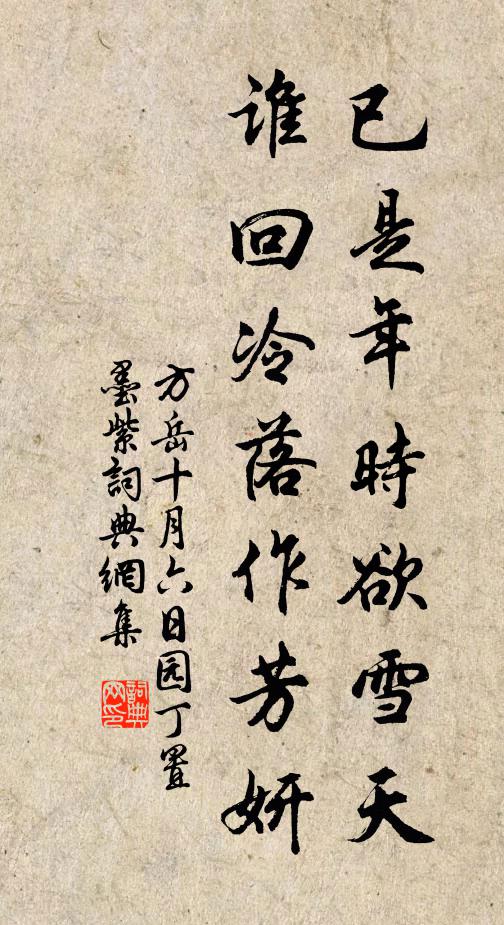 已是年時欲雪天
谁回冷落作芳妍
方岳十月六日园丁置
墨紫詞典網集
詞典
网印